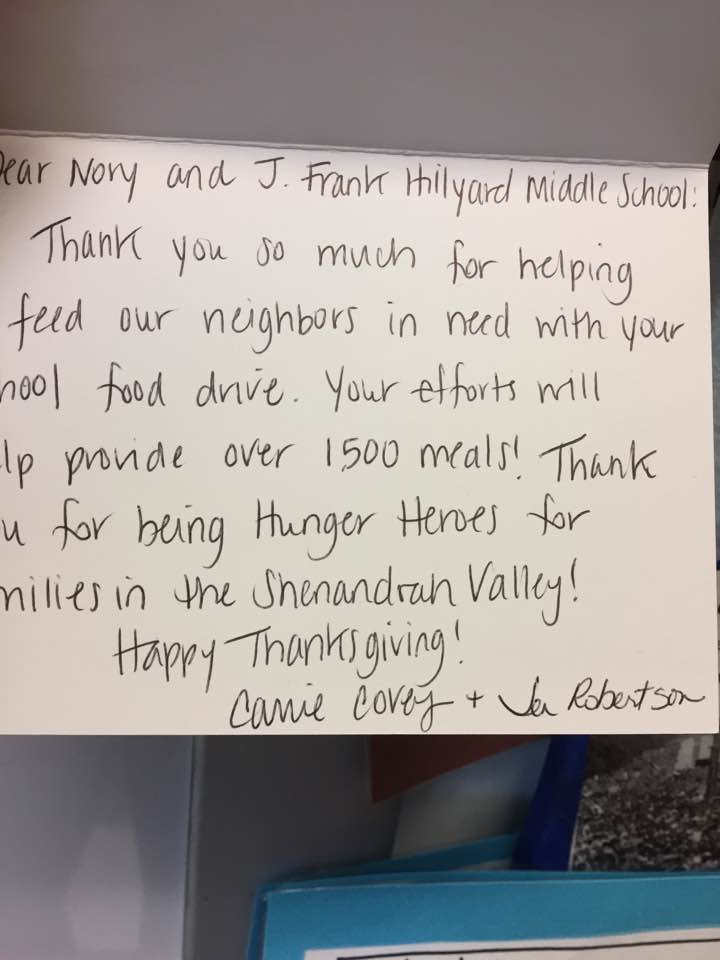 ear Nory and J. Frank Hillyard Middle School:
Thank you so much for helping
feed our neighbors in need with your
hool food drive. Your efforts will
lp provide over 1500 meals! Thank
u for being Hunger Heroes for
milies in the Shenandoah Valley!
Happy Thanksgiving!
Carrie Covey + Jen Robertson